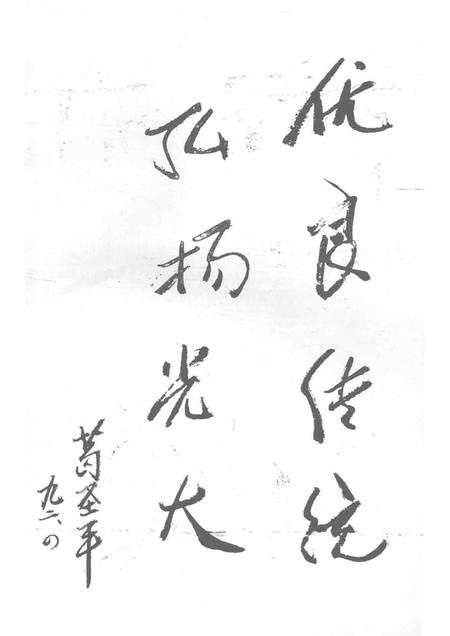 优良传统
弘扬光大
葛圣平
九六